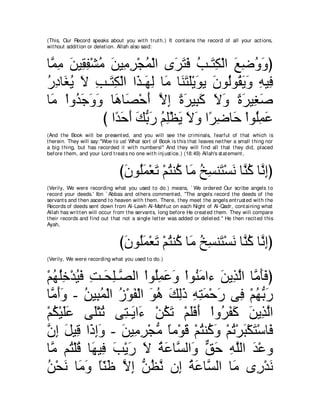 (This, Our Record speaks about you with truth.) It contains the record of all your actions,
without addition or deletion. Allah also said:
(وَوُضِعَ الْكِتَـبُ فَتَرَى الْمُجْرِمِينَ مُشْفِقِينَ مِمَّا
فِيهِ وَيَقُولُونَ يوَيْلَتَنَا مَا لِهَـذَا الْكِتَـبِ لاَ يُغَادِرُ
صَغِيرَةً وَلاَ كَبِيرَةً إِلاَّ أَحْصَاهَا وَوَجَدُواْ مَا
عَمِلُواْ حَاضِرًا وَلاَ يَظْلِمُ رَبُّكَ أَحَدًا )
(And the Book will be presented, and you will see the criminals, fearful of that which is
therein. They will say: "Woe to us! What sort of Book is this that leaves neither a small thing nor
a big thing, but has recorded it with numbers!'' And they will find all that they did, placed
before them, and your Lord treats no one with injustice.) (18:49) Allah's statement,
(إِنَّا كُنَّا نَسْتَنسِخُ مَا كُنْتُمْ تَعْمَلُونَ)
(Verily, We were recording what you used to do.) means, `We ordered Our scribe angels to
record your deeds.' Ibn `Abbas and others commented, "The angels record the deeds of the
servants and then ascend to heaven with them. There, they meet the angels entrusted with the
Records of deeds sent down from Al-Lawh Al-Mahfuz on each Night of Al-Qadr, containing what
Allah has written will occur from the servants, long before He created them. They will compare
their records and find out that not a single letter was added or deleted.'' He then recited this
Ayah,
(إِنَّا كُنَّا نَسْتَنسِخُ مَا كُنْتُمْ تَعْمَلُونَ)
(Verily, We were recording what you used to do.)
(فَأَمَّا الَّذِينَ ءَامَنُواْ وَعَمِلُواْ الصَّـلِحَـتِ فَيُدْخِلُهُمْ
رَبُّهُمْ فِى رَحْمَتِهِ ذَلِكَ هُوَ الْفَوْزُ الْمُبِينُ - وَأَمَّا
الَّذِينَ كَفَرُواْ أَفَلَمْ تَكُنْ ءَايَـتِى تُتْلَى عَلَيْكُمْ
فَاسْتَكْبَرْتُمْ وَكُنتُمْ قَوْماً مُّجْرِمِينَ - وَإِذَا قِيلَ إِنَّ
وَعْدَ اللَّهِ حَقٌّ وَالسَّاعَةُ لاَ رَيْبَ فِيهَا قُلْتُم مَّا
نَدْرِى مَا السَّاعَةُ إِن نَّظُنُّ إِلاَّ ظَنّاً وَمَا نَحْنُ